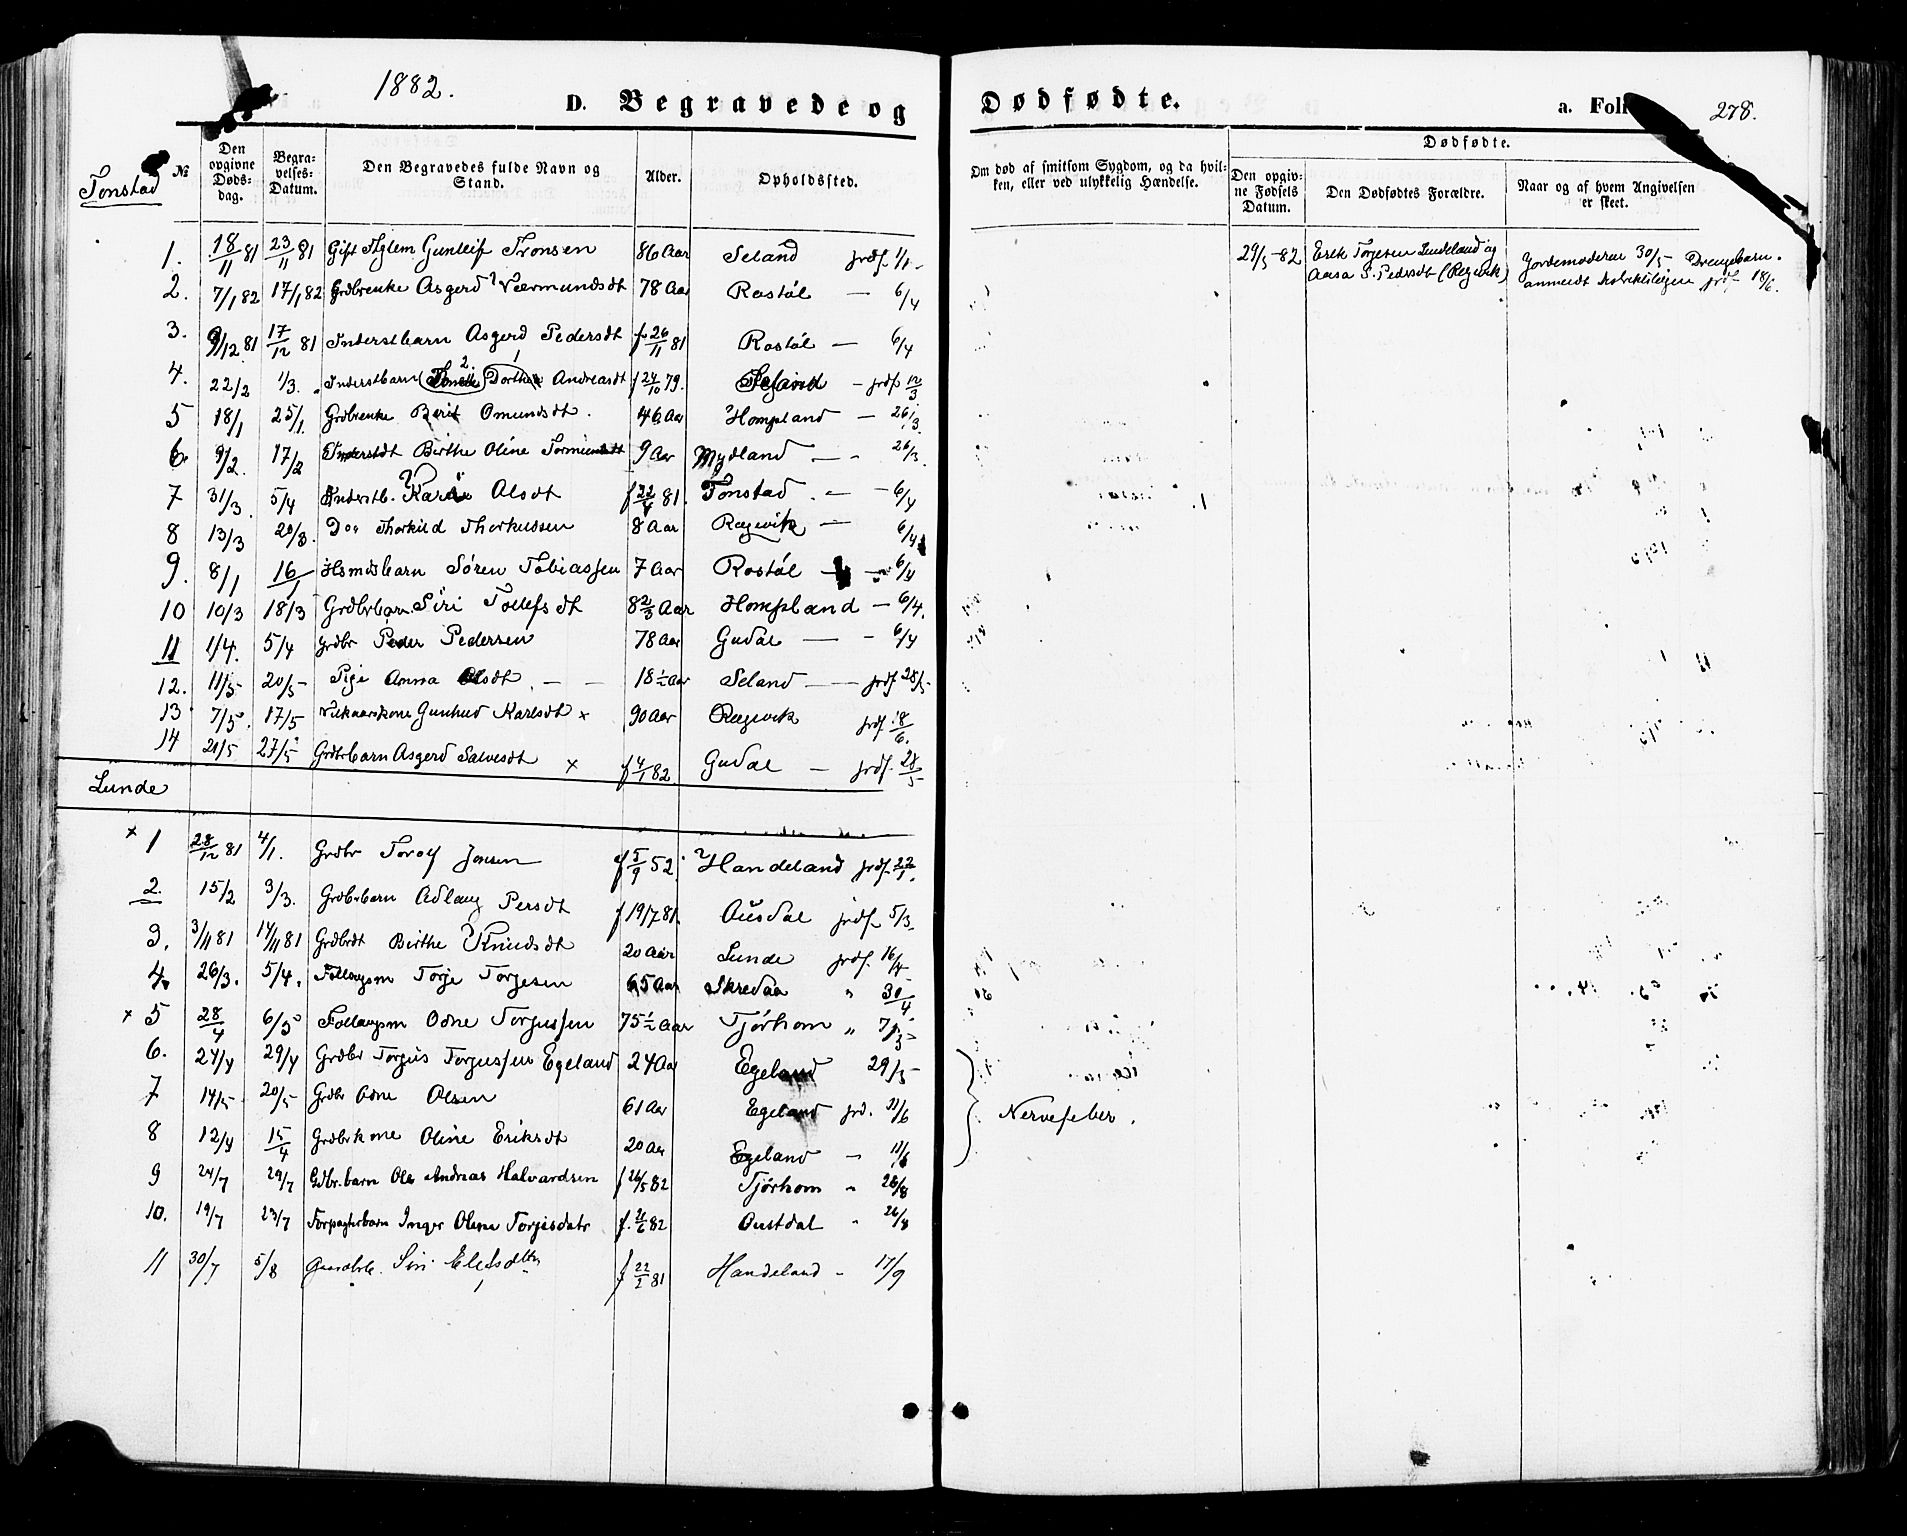 1882.
D. Begravede og Dødfødte.
a. Foli 278.
Tonstad
№
Den opgivne Døds-dag.
Begra-velses-Datum.
Den Begravedes fulde Navn og Stand.
Alder.
Opholdssted.
Om død af smitsom Sygdom, og da hvil-ken, eller ved ulykkelig Hændelse.
Dødfødte.
Den opgiv-ne Fødsels Datum.
Den Dødfødtes Forældre.
Naar og af hvem Angivelsen er skeet.
1. 18/11 81 23/11 81 Gift Gunleif Tronsen 86 Aar Seland jrdf. 1/1
29/5-82 Erik Torgesen og
Aasa S. Pedersdt (Regevik)
Jordemoderen 30/5 Drengebarn.
jrdf 18/6.
2. 7/1 82 17/1 82 Grdbrenke Asgerd Værmundsdt 78 Aar Rostøl — 6/4
3. 9/12 81 17/12 81 Inderstbarn Asgerd Pedersdt f 26/11 81 Rostøl — 6/4
4. 22/2 1/3. Inderstbarn Dorthea Andreasdt f 24/10 79. Seland — jrdf 12/3
5 18/1 25/1. Grdbrenke Berit Omundsdt. 46 Aar Hompland — 26/3.
6. 9/2. 17/2 Inderstdt Birthe Oline 9 Aar Mydland — 26/3.
7 31/3. 5/4 Inderstb. Karen Olsdt f 22/4 81. Tonstad. — 6/4
8 13/3 20/3. Do Thorkild Thorkelssen 8 Aar Regevik — 6/4
9. 8/1 16/1 Hsmdsbarn Søren Tobiassen 7 Aar Rostøl — 6/4
10 10/3 18/3 Grdbrbarn Siri Tollefsdt 8 2/3 Aar Hompland — 6/4.
11 1/4. 5/4 Grdbr Peder Pedersen 78 Aar Gudal — 6/4
12. 11/5 20/5 Pige Anna Olsdt. — 18 1/2 Aar Seland — jrdf 28/5
13 7/5. 17/5 Gunhild Karlsdt x 90 Aar Regevik jrdf. 18/6.
14 21/5 27/5 Grdbrbarn Asgerd Salvesdt x f 4/1 82 Gudal — jrdf. 28/5
Lunde
x 1 28/12 81 4/1. Grdbr Torolf Jonsen f 5/9 52. Handeland jrdf. 22/1.
2. 15/2 3/3. Grdbrbarn Adlaug Persdt f 19/7 81. Ousdal jrdf 5/3
3. 3/11 81 14/11 81 Grdbrdt Birthe Knudsdt 20 Aar Lunde jrdf. 16/4
4. 26/3. 5/4. Follaugsm Torje Torjesen 65 Aar Skredaa " 30/4
x 5 28/4 6/5 Follaugsm Odne Torjussen 75 1/2 Aar Tjørhom "
6. 24/4 29/4 Grdbr Torjus Torjussen Egeland 24 Aar Egeland 29/5
7 14/5 20/5 Grdbr Odne Olsen 61 Aar Egeland jrd. 11/6 Nervefeber.
8 12/4 15/4 Grdbrkone Oline Eriksdt 20 Aar Egeland — 11/6
9 24/7 29/7 Gdbr.barn Ole Andreas Halvardsen f 26/5 82 Tjørhom " 26/8
10. 19/7 23/7 Forpagterbarn Inger Olene Torjusdatr f. 21/6 82 Oustdal " 26/8
11 30/7 5/8 Gaardbrb. Siri Elefsdtr f 22/2 81 Handeland - 17/9